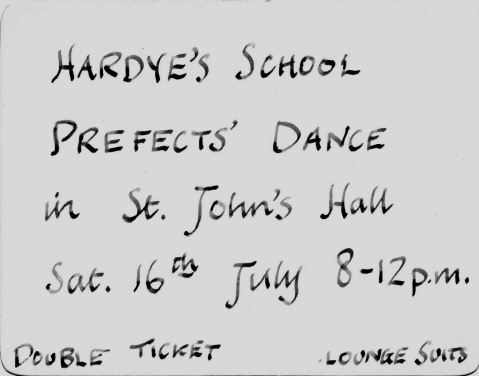 HARDYE'S SCHOOL
PREFECTS' DANCE
in St. John's Hall
Sat. 16th July 8-12p.m.
DOUBLE TICKET LOUNGE SUITS